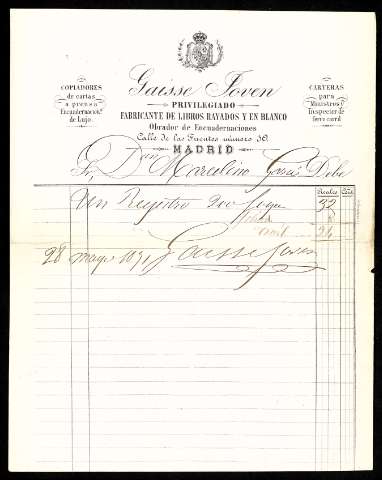 Gaisse Joven
PRIVILEGIADO
FABRICANTE DE LIBROS RAYADOS Y EN BLANCO
Obrador de Encuadernaciones
Calle de las Fuentes número 30
MADRID
COPIADORES
de cartas
a prensa
Encuadernacion.s
de Lujo.
CARTERAS
para
Ministros é
Inspector de
ferro carril
Sr. Don Marcelino
Reales Cént.
Un Registro 200 fojas 32
8
24
28 mayo 1871 Gaisse Joven